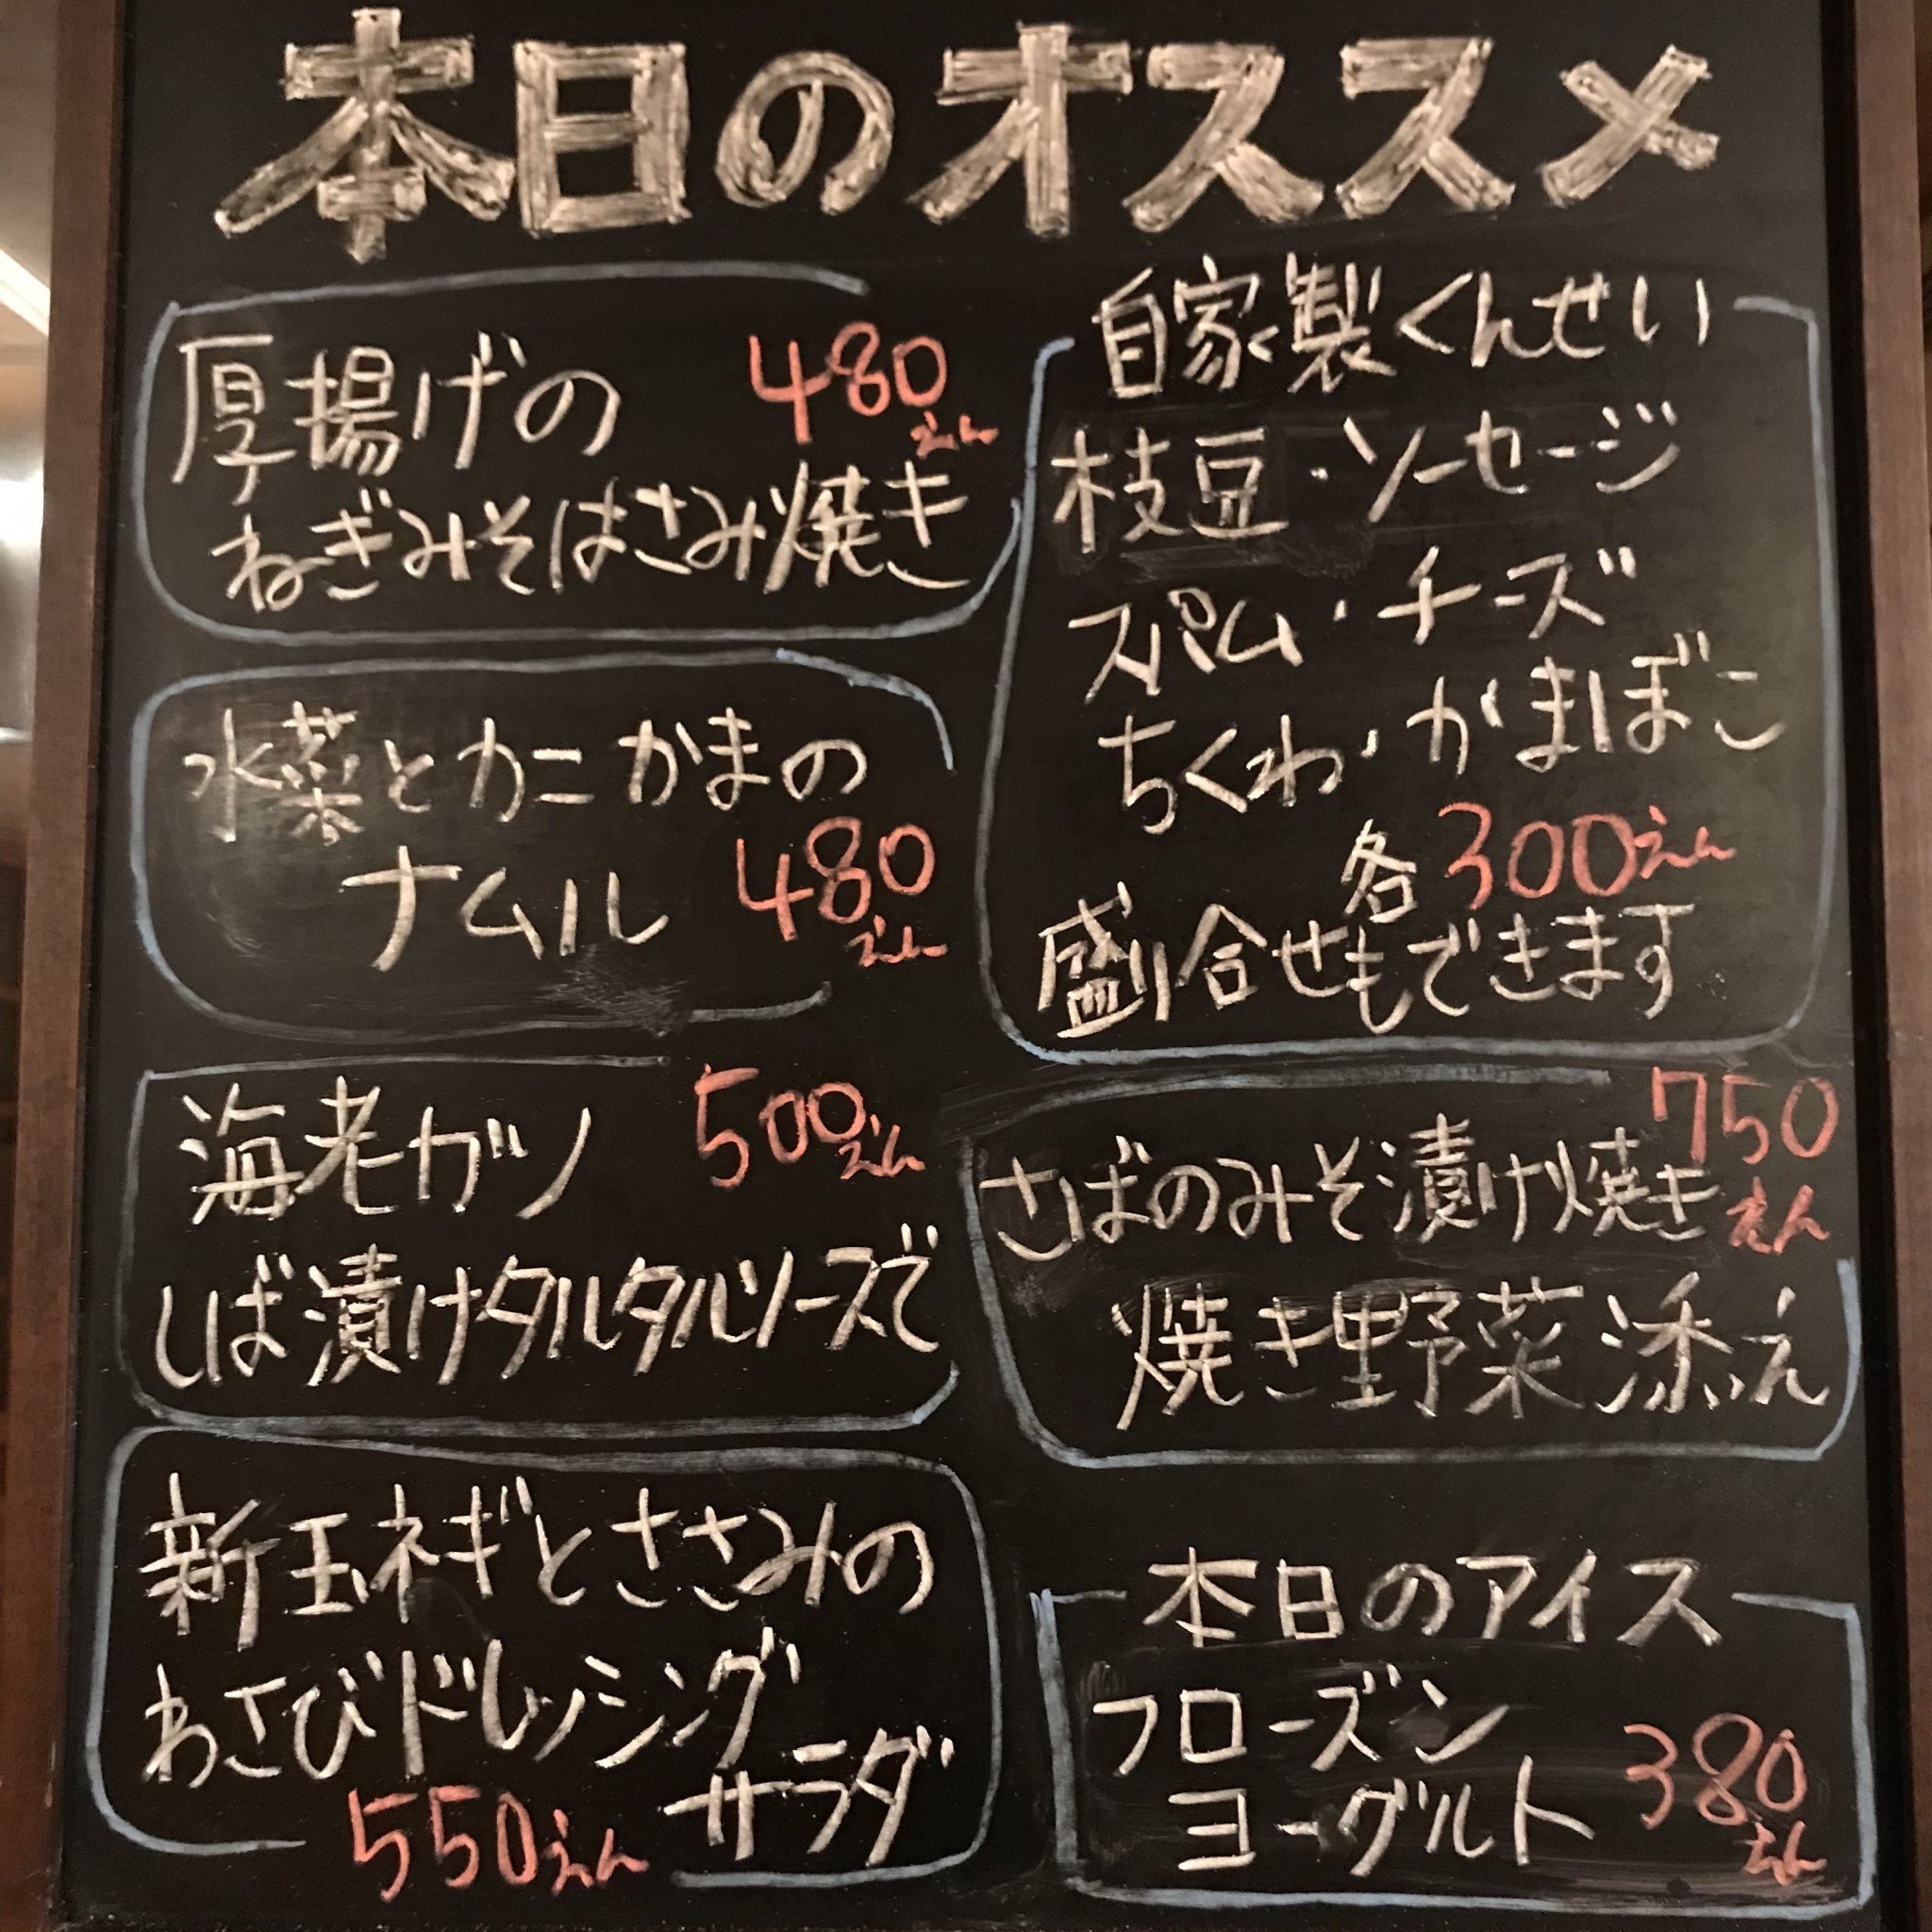 本日のオススメ
厚揚げの 480えん
ねぎみそはさみ焼き
水菜とカニかまの
ナムル 480えん
海老カツ 500えん
しば漬けタルタルソースで
新玉ネギとささみの
わさびドレッシング
サラダ
550えん
自家製くんせい
枝豆・ソーセージ
スパム・チーズ
ちくわ・かまぼこ
各300えん
盛り合せもできます
さばのみそ漬け焼き 750えん
焼き野菜添え
本日のアイス
フローズン
ヨーグルト 380えん